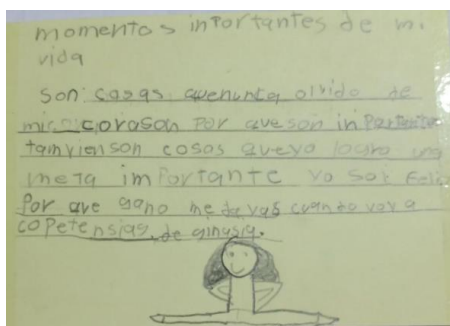 momentos inportantes de mi
vida
Son cosas quenunca olvido de
mi corason Por queson inportante
tamvien son cosas queyo logro una
meta importante yo soi Feliz
Por que gano medayas cuando voy a
copetensias de ginasia.